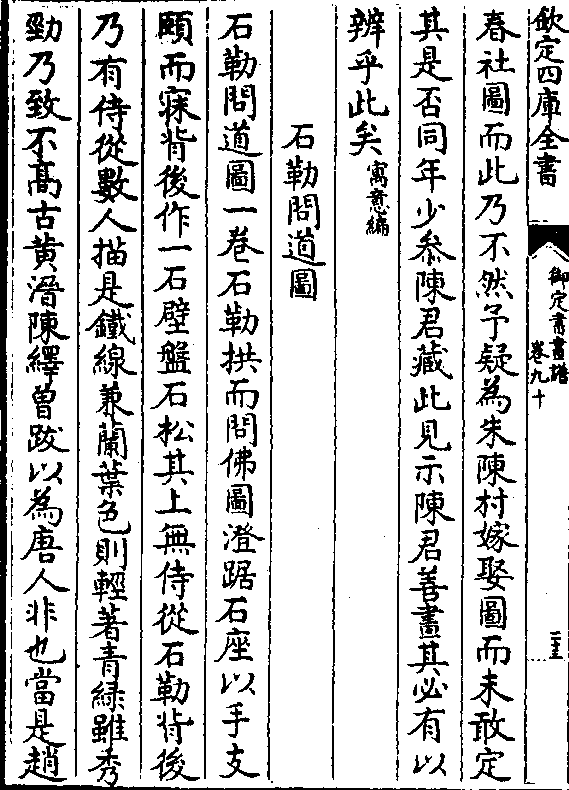 欽定四庫全書
御定書畫譜
卷九十
二十五
春社圖而此乃不然予疑為朱陳村嫁娶圖而未敢定
其是否同年少叅陳君藏此見示陳君善畫其必有以
辨乎此矣寓意編
石勒問道圖
石勒問道圖一卷石勒拱而問佛圖澄踞石座以手支
頤而寐背後作一石壁盤石松其上無侍從石勒背後
乃有侍從數人描是鐵線兼蘭葉色則輕著青緑雖秀
勁乃致不髙古黄溍陳繹曽跋以為唐人非也當是趙